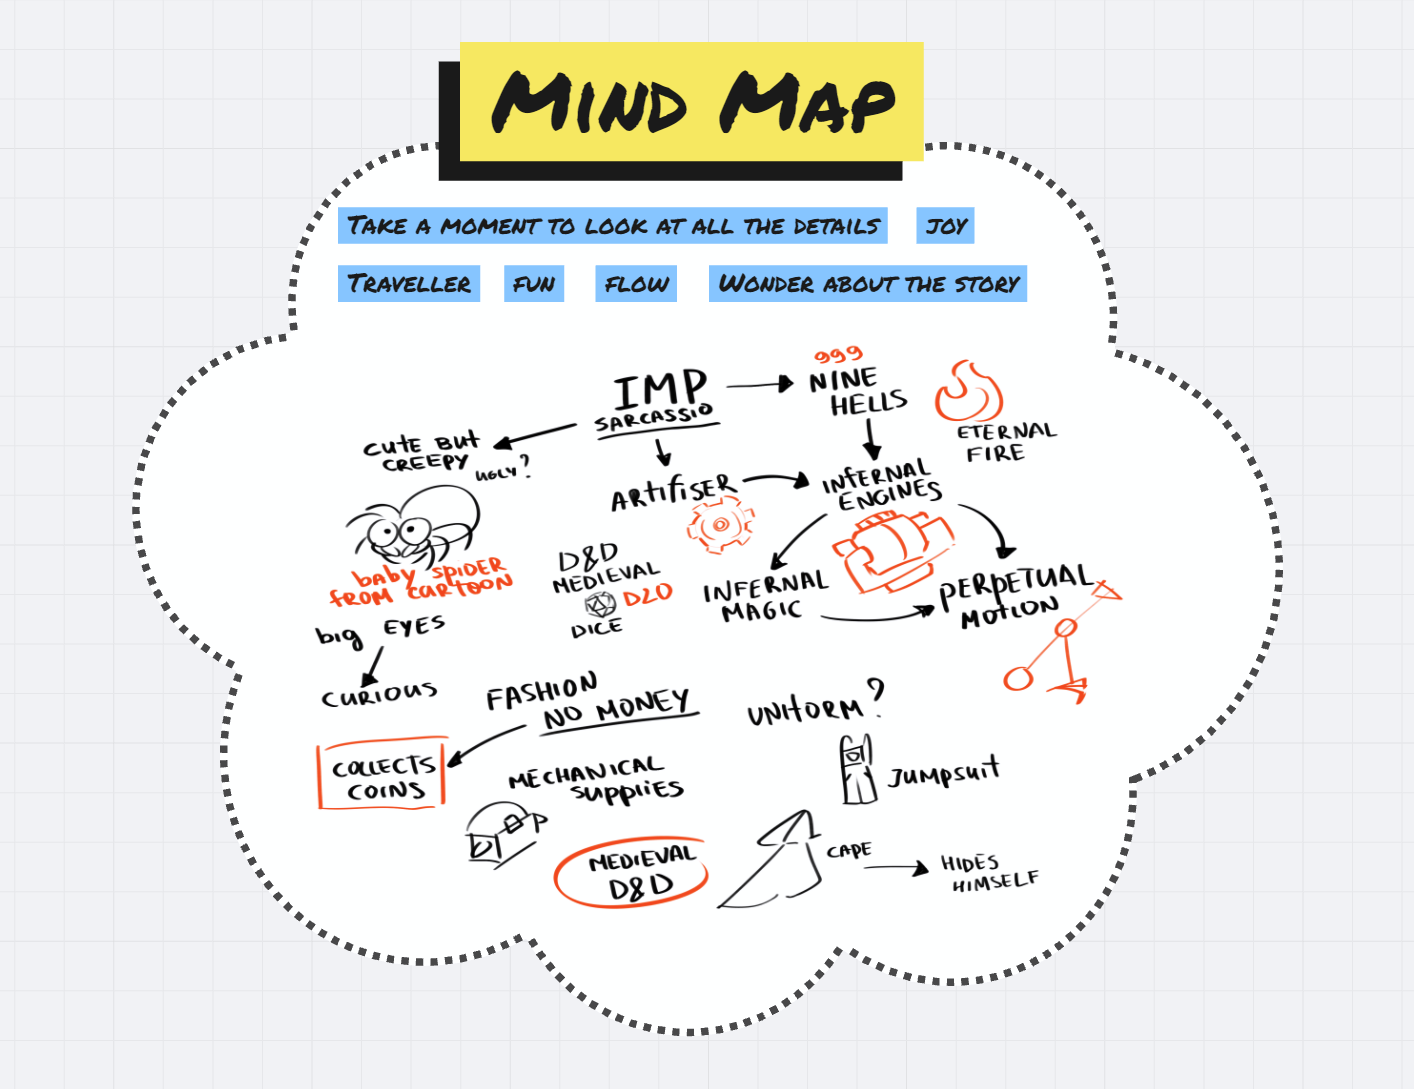 MIND MAP
TAKE A MOMENT TO LOOK AT ALL THE DETAILS
JOY
TRAVELLER
FUN
FLOW
WONDER ABOUT THE STORY
IMP
SARCASSIO
999
NINE
HELLS
ETERNAL
FIRE
CUTE BUT
CREEPY
UGLY?
ARTIFISER
INFERNAL
ENGINES
baby SPIDER
FROM CARTOON
D&D
MEDIEVAL
D20
DICE
INFERNAL
MAGIC
PERPETUAL
MOTION
big EYES
CURIOUS
FASHION
NO MONEY
UNIFORM?
COLLECTS
COINS
MECHANICAL
SUPPLIES
JUMPSUIT
MEDIEVAL
D&D
CAPE
HIDES
HIMSELF